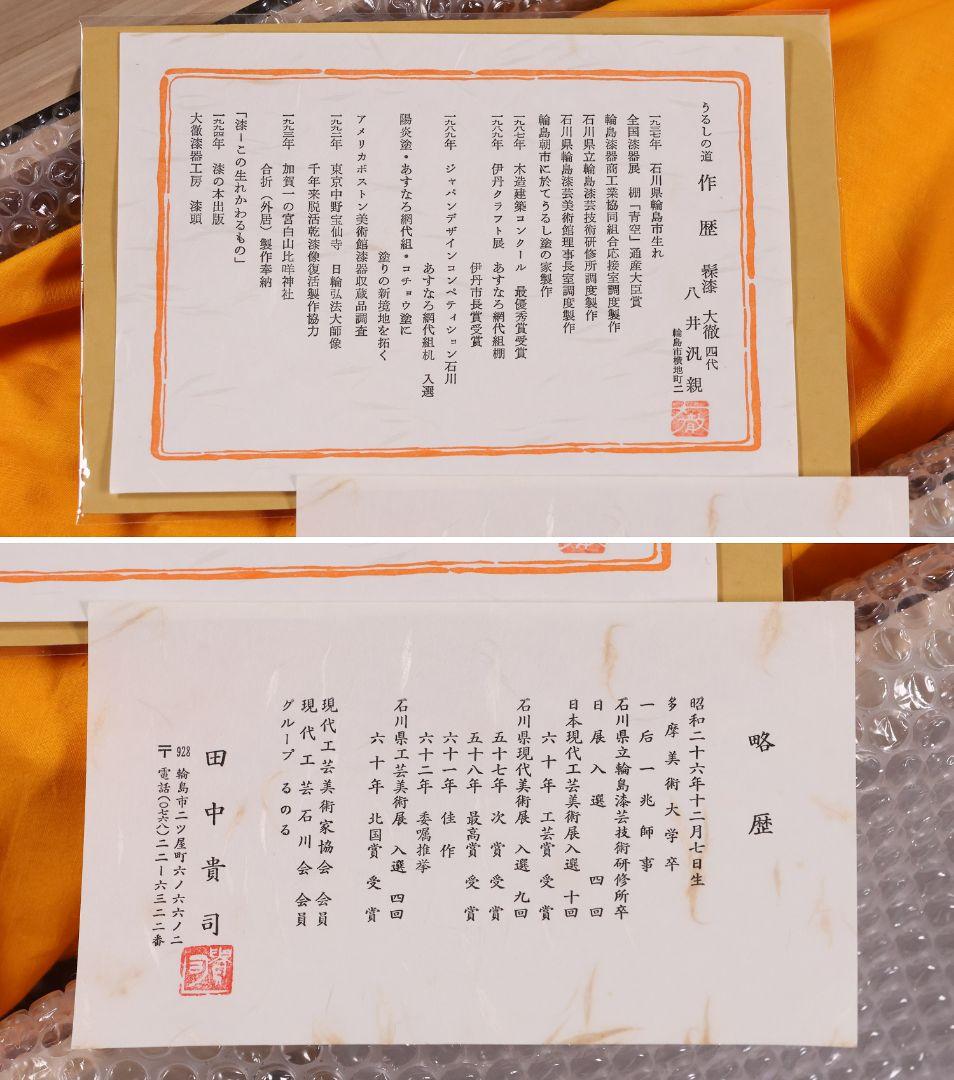 うるしの道 作歴 髹漆 大徹 四代
八井汎親
輪島市横地町二
一九三七年 石川県輪島市生れ
全国漆器展 棚「青空」通産大臣賞
輪島漆器商工業協同組合応接室調度製作
石川県立輪島漆芸技術研修所調度製作
石川県輪島漆芸美術館理事長室調度製作
輪島朝市に於てうるし塗の家製作
一九八七年 木造建築コンクール 最優秀賞受賞
一九八八年 伊丹クラフト展 あすなろ網代組棚
伊丹市長賞受賞
一九八九年 ジャパンデザインコンペティション石川
あすなろ網代組机 入選
陽炎塗・あすなろ網代組・コチョウ塗に
塗りの新境地を拓く
アメリカボストン美術館漆器収蔵品調査
一九九二年 東京中野宝仙寺 日輪弘法大師像
千年来脱活乾漆像復活製作協力
一九九三年 加賀一の宮白山比咩神社
合折(外居)製作奉納
「漆ーこの生れかわるもの」
一九九四年 漆の本出版
大徹漆器工房 漆頭
略歴
昭和二十六年十二月七日生
多摩美術大学卒
一后一兆師事
石川県立輪島漆芸技術研修所卒
日展入選 四回
日本現代工芸美術展入選 十回
六十年 工芸賞 受賞
石川県現代美術展 入選 九回
五十七年 次賞 受賞
五十八年 最高賞 受賞
六十一年 佳作
六十二年 委嘱推挙
石川県工芸美術展 入選 四回
六十年 北国賞 受賞
現代工芸美術家協会 会員
現代工芸石川会 会員
グループ るのる
田中貴司
〒928 輪島市二ツ屋町六ノ六六ノ二
電話(〇七六八)二二ー六三二二番